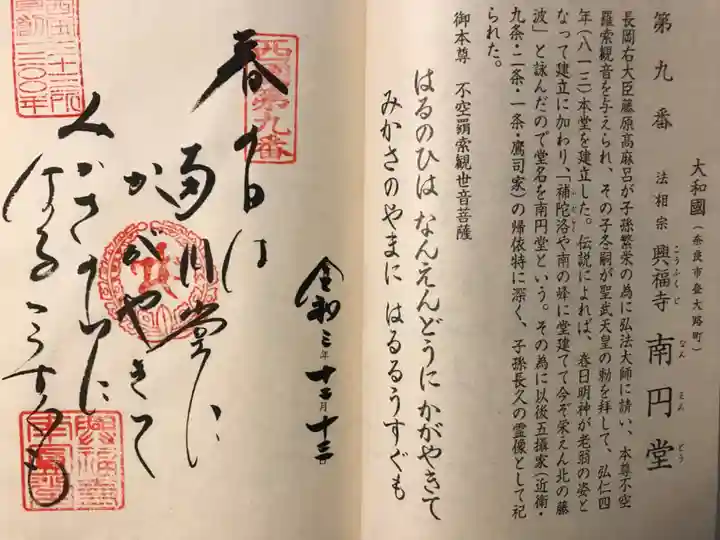 第九番
大和國（奈良市登大路町）
法相宗 興福寺 南円堂
こうふくじ なんえんどう
長岡右大臣藤原高麻呂が子孫繁栄の為に弘法大師に請い、本尊不空
羂索観音を与えられ、その子冬嗣が聖武天皇の勅を拝して、弘仁四
年（八一三）本堂を建立した。伝説によれば、春日明神が老翁の姿と
なって建立に加わり、「補陀洛や南の峰に堂建てて今ぞ栄えん北の藤
波」と詠んだので堂名を南円堂という。その為に以後五摂家（近衛・
九条・二条・一条・鷹司家）の帰依特に深く、子孫長久の霊像として祀
られた。
御本尊 不空羂索観世音菩薩
はるのひは なんえんどうに かがやきて
みかさのやまに はるるうすぐも
令和三年十二月十三日
西国第九番
春の日は
南円堂に
かがやきて
三かさの山に
はるるうすぐも
西国三十三所
草創一三〇〇年